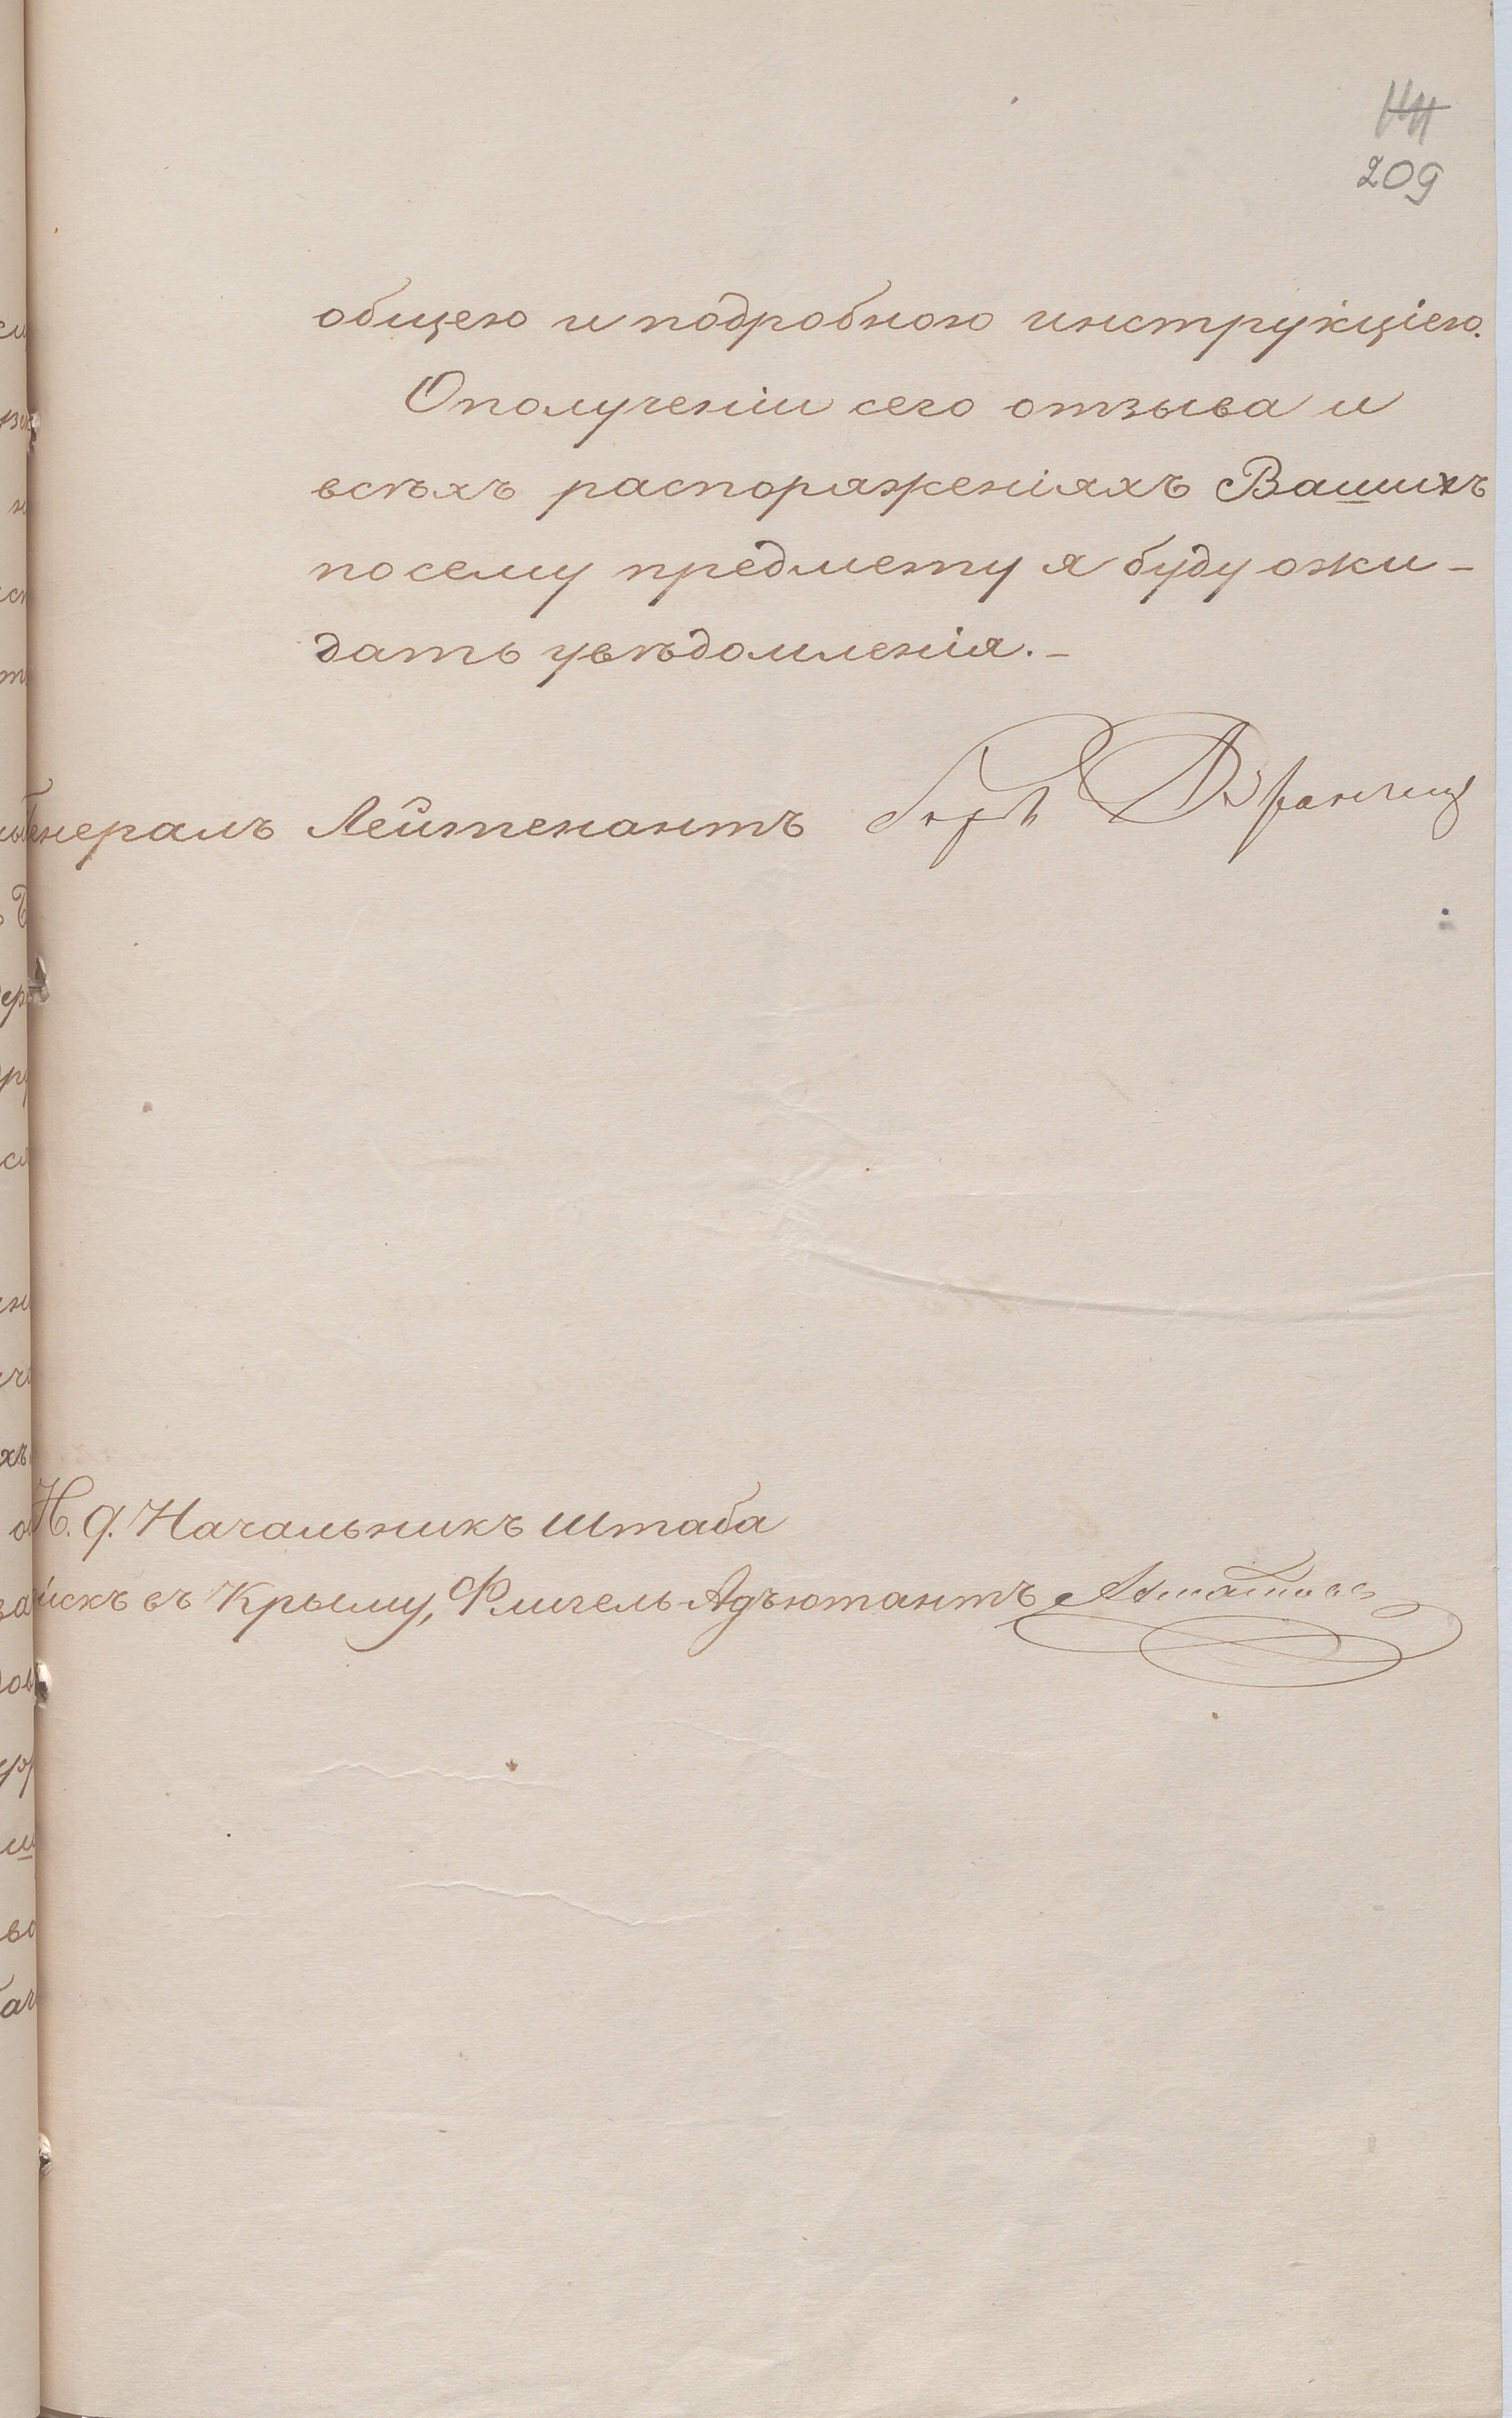 209
общею и подробною инструкціею.
О получении сего отзыва и
всѣхъ распоряженіяхъ Вашихъ
по сему предмету я буду ожи-
дать увѣдомленія.-
Генералъ Лейтенантъ
И. д. Начальникъ Штаба
войскъ въ Крыму, Флигель-Адъютантъ